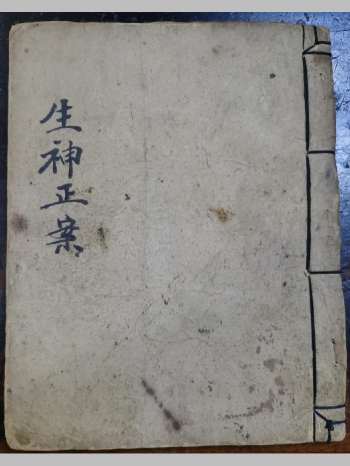 生神正案